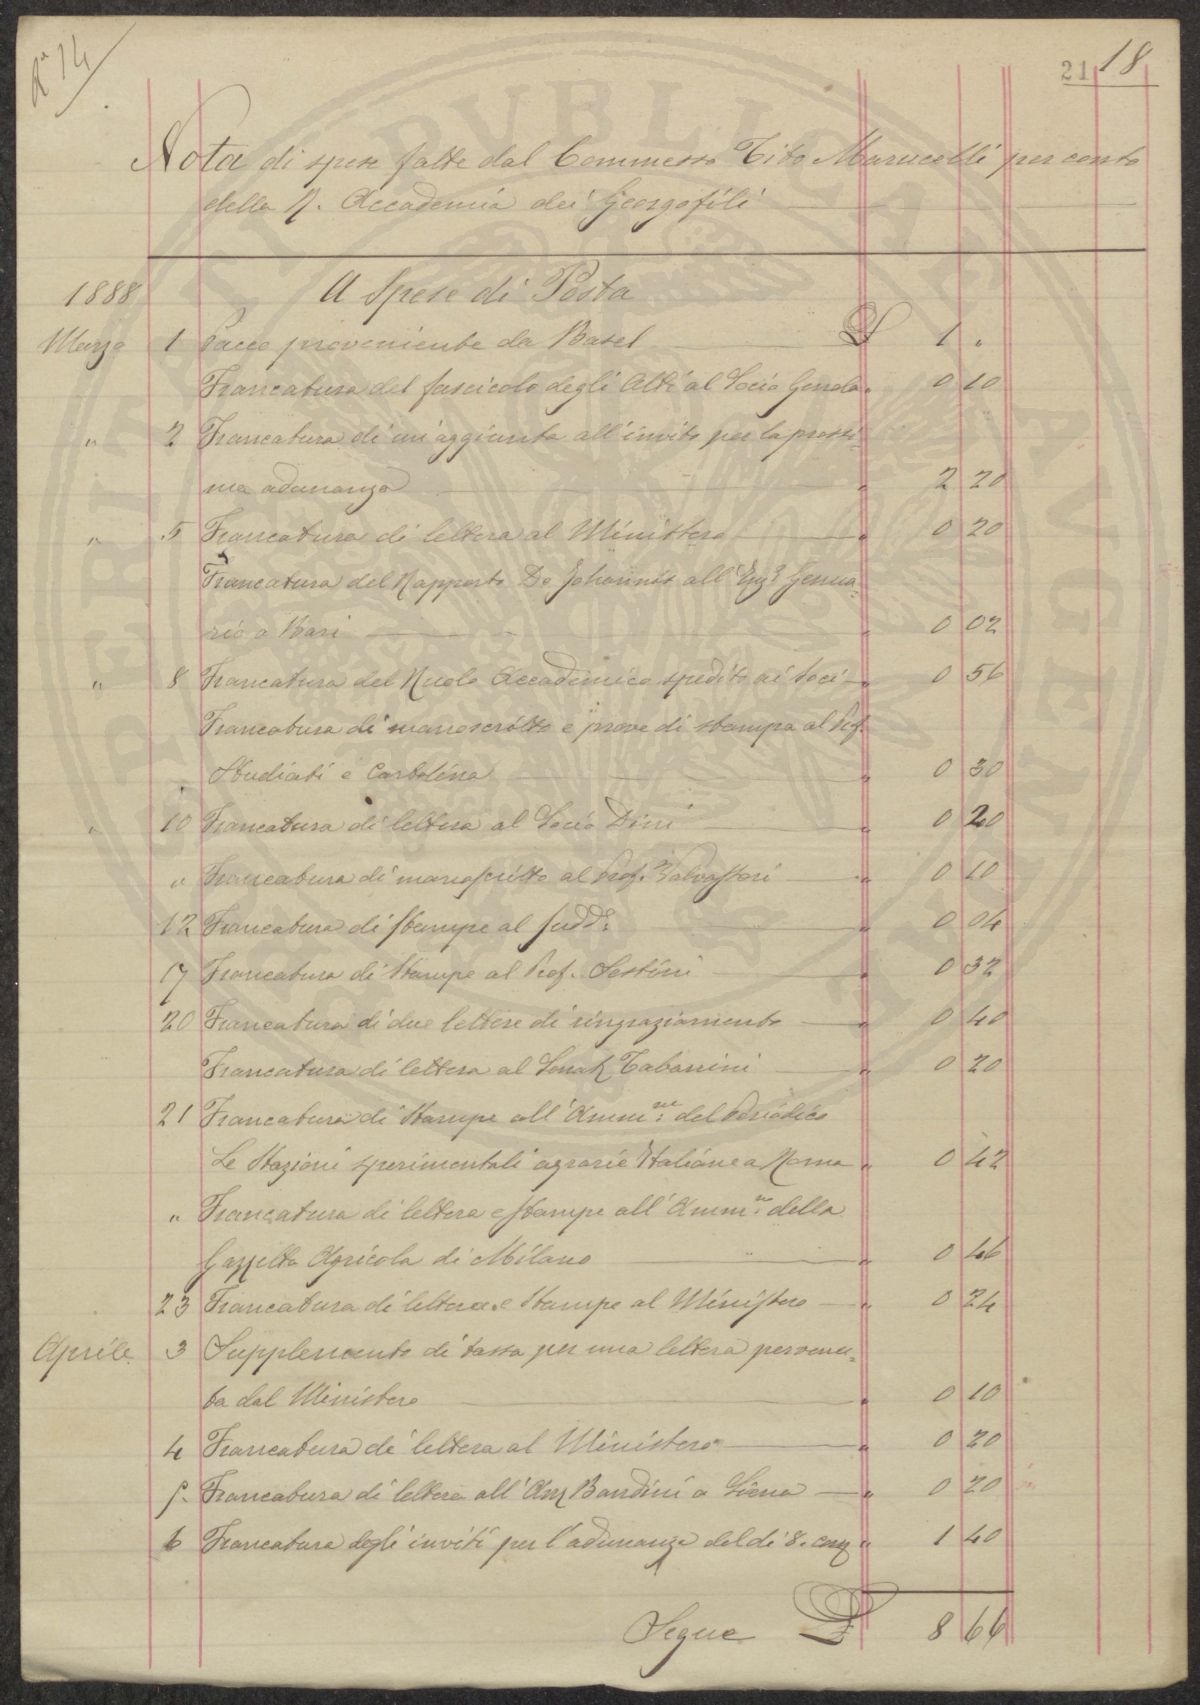 Nº 14
21 18
Nota di spese fatte dal Commesso Tito Marucelli per conto
della R. Accademia dei Georgofili
1888 A Spese di Posta
Marzo 1 Pacco proveniente da Basel £ 1 "
Francatura del fascicolo degli Atti al Socio " 0 10
" 2 Francatura di un'aggiunta all'invito per la prossi-
ma adunanza " 2 20
" 5 Francatura di lettera al Ministero " 0 20
Francatura del Rapporto De Johannis all'Ing.e Genna-
rio a Bari " 0 02
" 8 Francatura del Ruolo Accademico spedito ai Soci " 0 56
Francatura di manoscritto e prove di stampa al Prof.
Studiati e Cartolina " 0 30
" 10 Francatura di lettera al Socio Dini " 0 20
" Francatura di manoscritto al Prof. " 0 10
12 Francatura di stampe al sudd.o " 0 04
17 Francatura di Stampe al Prof. Sestini " 0 32
20 Francatura di due lettere di ringraziamento " 0 40
Francatura di lettera al Senat. Tabarrini " 0 20
21 Francatura di Stampe all'Amm.ne del Periodico
Le Stazioni sperimentali agrarie Italiane a Roma " 0 42
" Francatura di lettera e stampe all'Amm.ne della
Gazzetta Agricola di Milano " 0 46
23 Francatura di lettera e Stampe al Ministero " 0 24
Aprile 3 Supplemento di tassa per una lettera pervenu-
ta dal Ministero " 0 10
4 Francatura di lettera al Ministero " 0 20
5. Francatura di lettera all' Bandini a Siena " 0 20
6 Francatura degli inviti per l'adunanza del dì 8. " 1 40
Segue £ 8 66